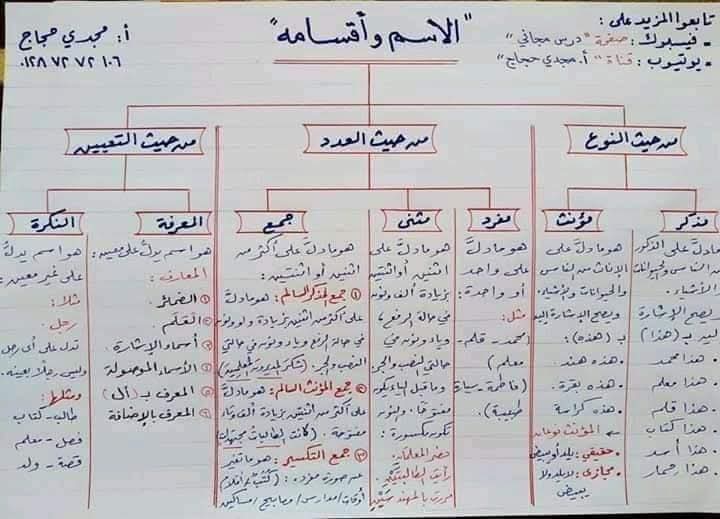 تابعوا المزيد على:
- فيسبوك: صفحة "درس مجاني"
- يوتيوب: قناة "أ. مجدي حجاج"
"الاسم وأقسامه"
أ: مجدي حجاج
٠١٢٨٧٢٧٢١٠٦
من حيث النوع
من حيث العدد
من حيث التعيين
مذكر
هو مادلَّ على الذكور
من الناس والحيوانات
والأشياء.
ويصح الإشارة
إليه بـ (هذا)
• هذا محمد
• هذا معلم
• هذا قلم
• هذا كتاب
• هذا أسد
• هذا حمار
مؤنث
هو مادلَّ على
الإناث من الناس
والحيوانات والأشياء.
ويصح الإشارة إليه
بـ (هذه):
• هذه هند.
• هذه بقرة.
• هذه كراسة
المؤنث نوعان
• حقيقي: يلد أو يبيض
• مجازي: لا يلد ولا
يبيض
مفرد
هو مادلَّ
على واحد
أو واحدة:
مثل:
(محمد - قلم -
معلم)
(فاطمة - سيارة
طبيبة).
مثنى
هو مادلَّ على
اثنين أو اثنتين
بزيادة ألف ونون
في حالة الرفع،
وياء ونون في
حالتي النصب والجر
وما قبل الياء يكون
مفتوحًا، والنون
تكون مكسورة:
حضر المعلمانِ.
رأيت الطالبتَيْنِ.
مررت بالمهندسَيْنِ
جمع
هو مادلَّ على أكثر من
اثنين أو اثنتين:
① جمع المذكر السالم: هو مادلَّ
على أكثر من اثنين بزيادة واو ونون
في حالة الرفع وياء ونون في حالتي
النصب والجر. (شكر المديرون المعلمين)
② جمع المؤنث السالم: هو مادلَّ
على أكثر من اثنتين بزيادة ألف وتاء
مفتوحة. (كانت الطالبات مجتهدات)
③ جمع التكسير: هو ما تغير
عن صورة مفرده: (كتب / أقلام /
أوقات / مدارس / مصابيح / مساكين)
المعرفة
هو اسم يدلُّ على معين:
المعارف:
① الضمائر.
② العَلَم.
③ أسماء الإشارة.
④ الأسماء الموصولة
⑤ المعرف بـ (أل)
⑥ المعرف بالإضافة
النكرة
هو اسم يدلُّ
على غير معين:
مثلًا:
رجل.
تدل على أي رجل
وليس رجلًا بعينه.
ومثلها:
طالب - كتاب
فصل - معلم
قصة - ولد